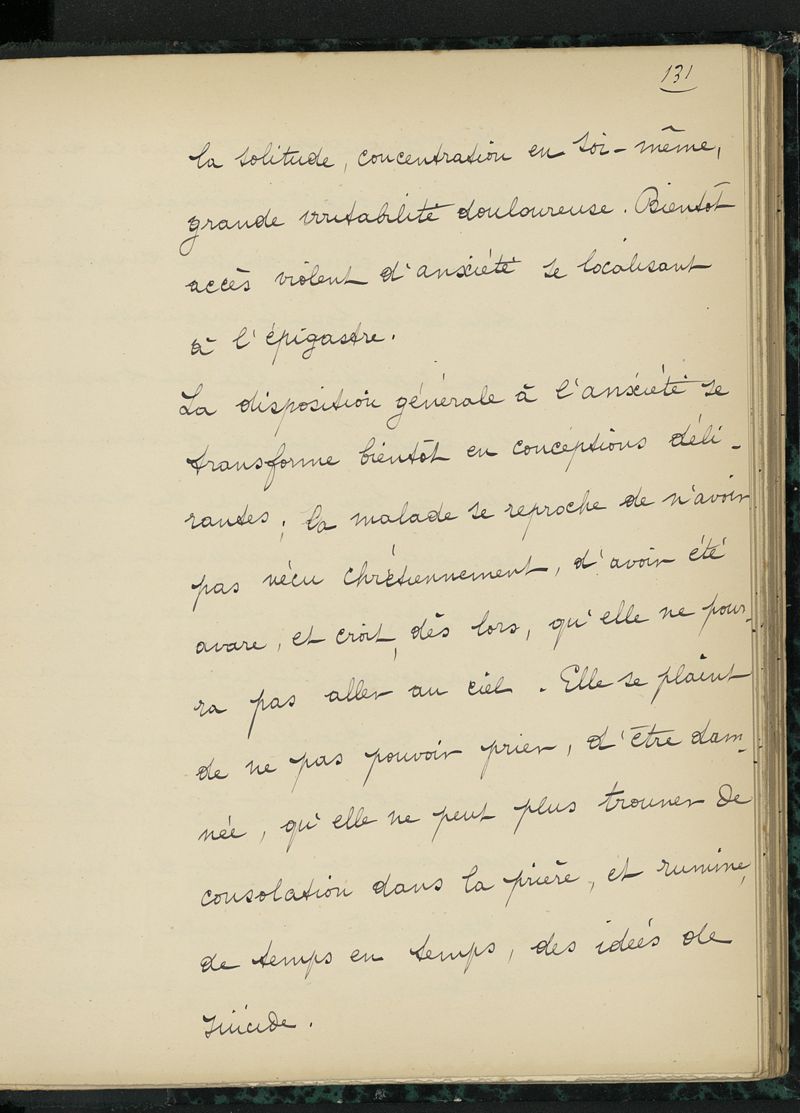 131
la solitude, concentration en soi-même,
grande irritabilité douloureuse. Bientôt
accès violent d'anxiété se localisant
à l'épigastre.
La disposition générale à l'anxiété se
transforme bientôt en conceptions déli-
rantes ; la malade se reproche de n'avoir
pas vécu chrétiennement, d'avoir été
avare, et croit, dès lors, qu'elle ne pour-
ra pas aller au ciel. Elle se plaint
de ne pas pouvoir prier, d'être dam-
née, qu'elle ne peut plus trouver de
consolation dans la prière, et rumine,
de temps en temps, des idées de
suicide.